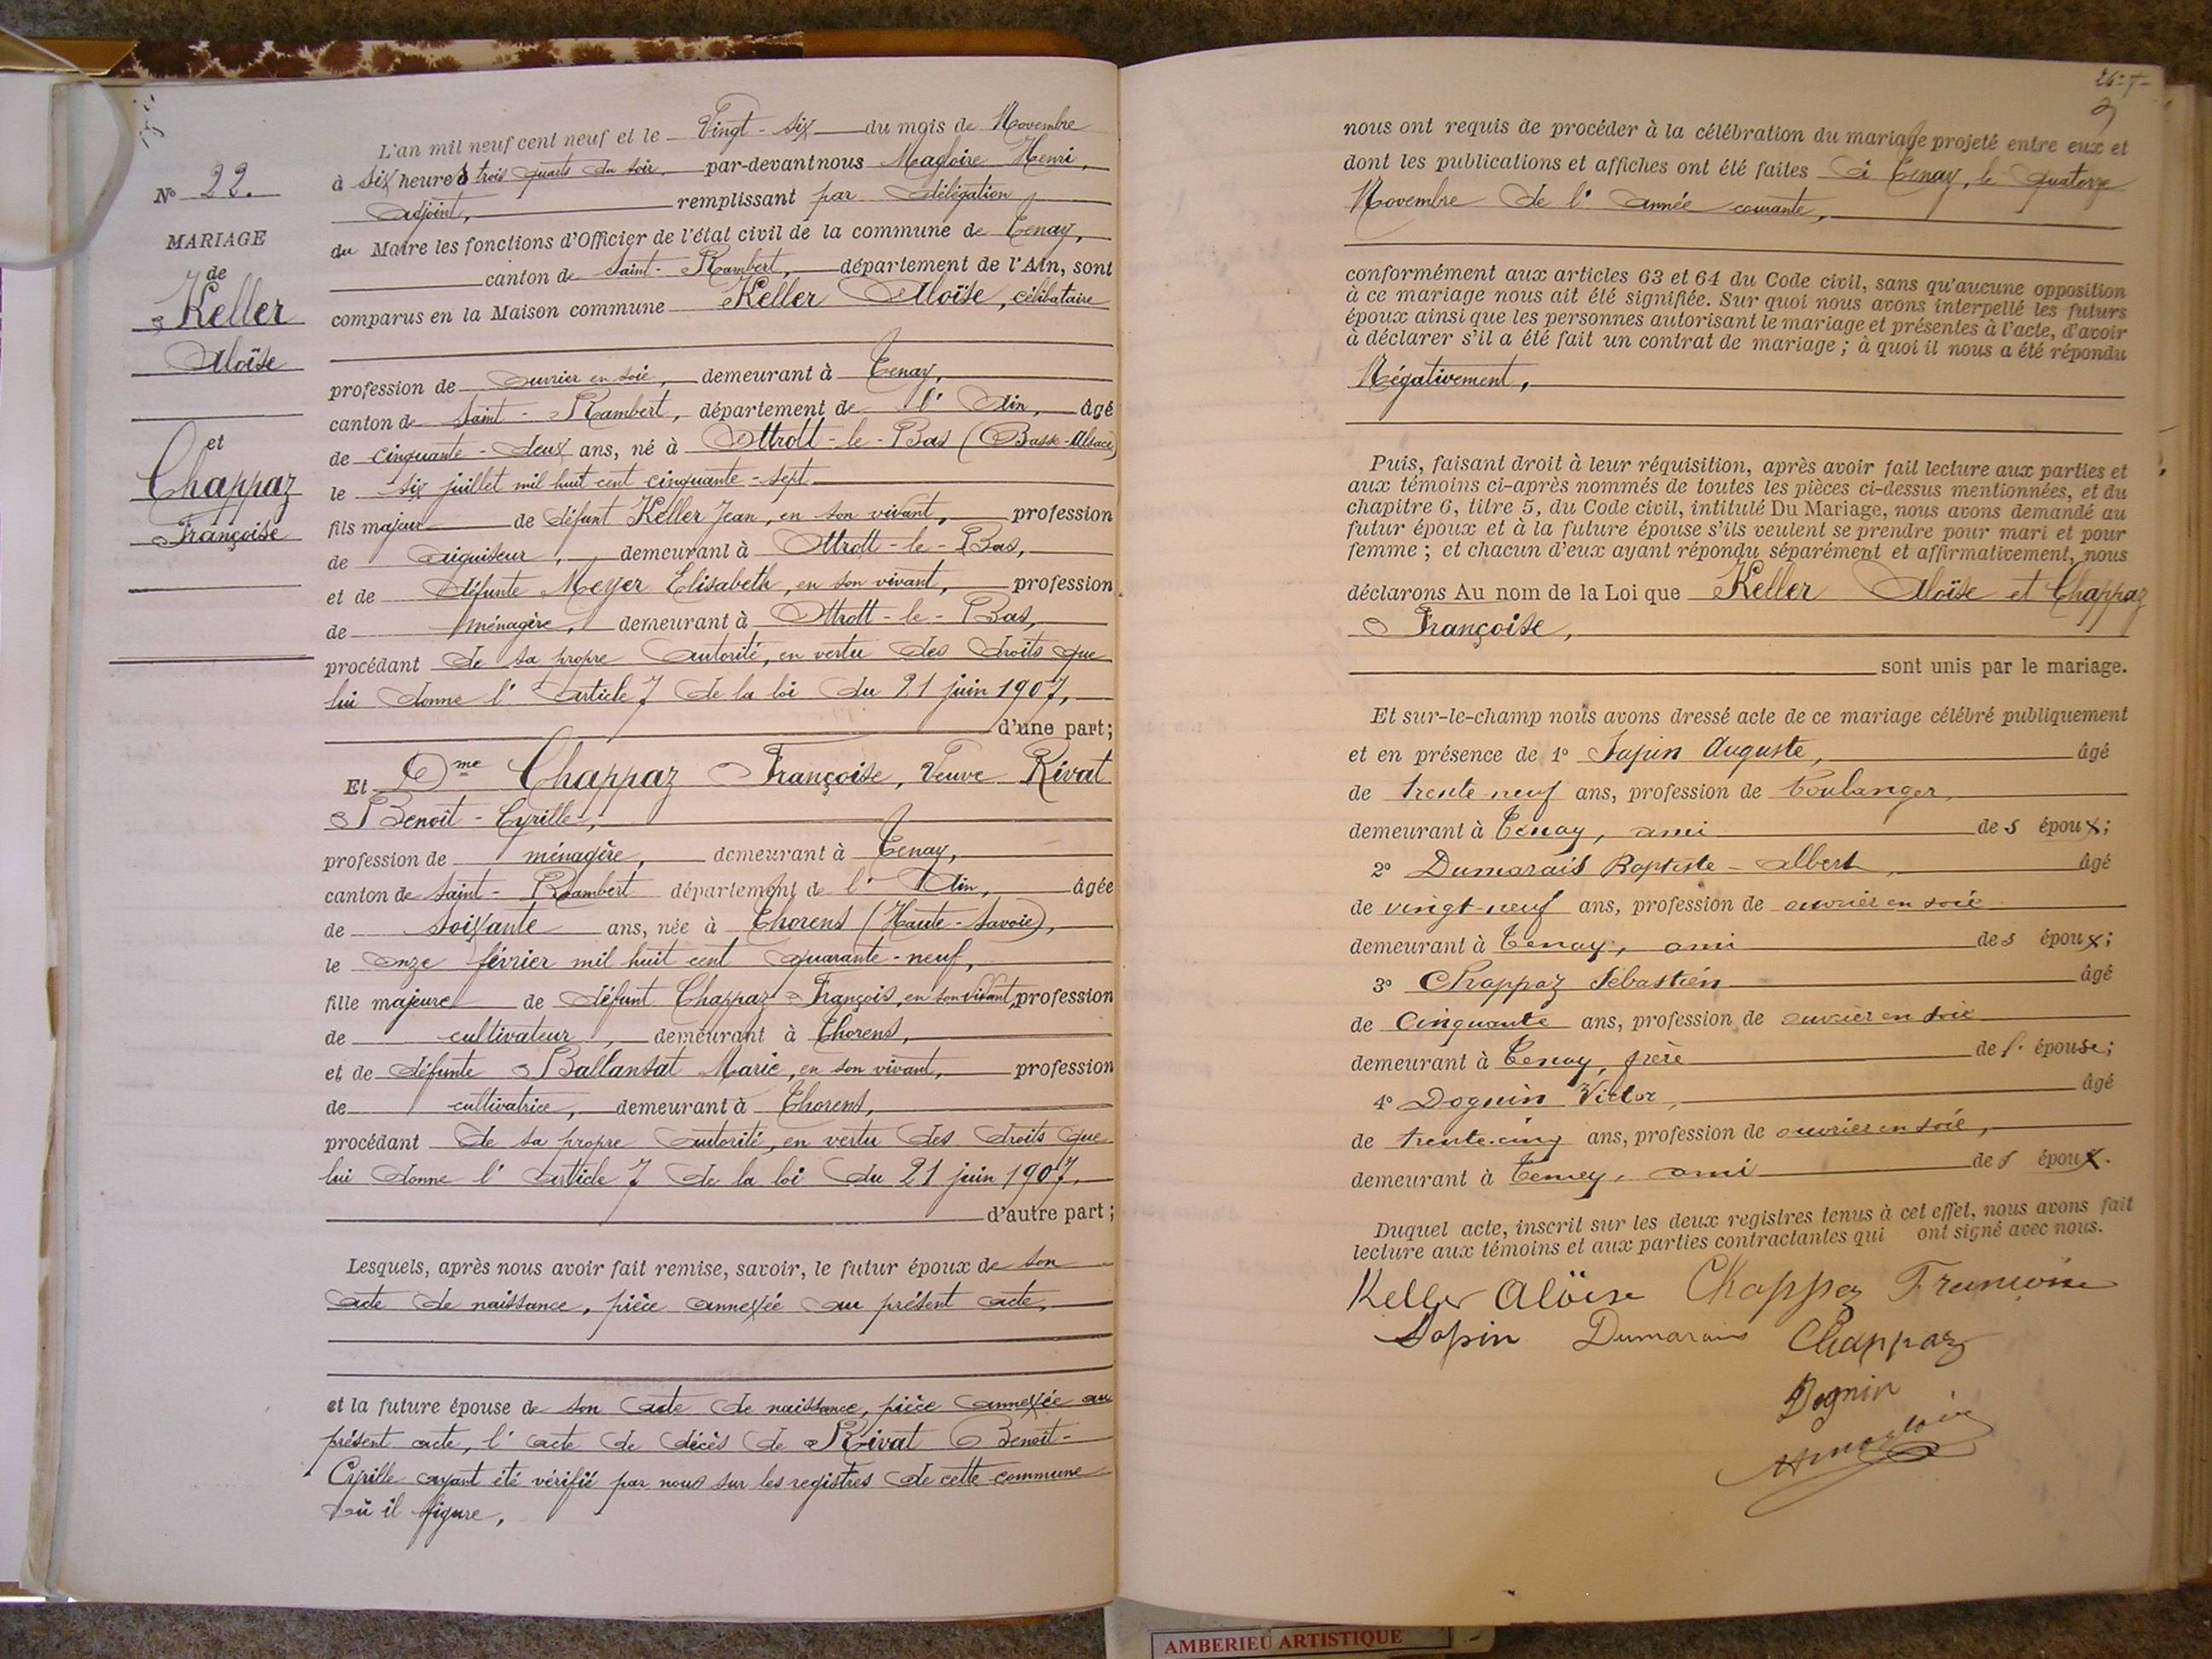 Nº 22.
MARIAGE
de
Keller
Aloïse
et
Chappaz
Françoise
L'an mil neuf cent neuf et le Vingt-six du mois de Novembre
à six heures trois quarts du soir, par-devant nous Magloire Henri,
Adjoint, remplissant par délégation
du Maire les fonctions d'Officier de l'état civil de la commune de Tenay,
canton de Saint-Rambert, département de l'Ain, sont
comparus en la Maison commune Keller Aloïse, célibataire
profession de ouvrier en soie, demeurant à Tenay,
canton de Saint-Rambert, département de l'Ain, âgé
de cinquante-deux ans, né à Ottrott-le-Bas (Basse-Alsace)
le six juillet mil huit cent cinquante-sept
fils majeur de défunt Keller Jean, en son vivant, profession
de aiguiseur, demeurant à Ottrott-le-Bas,
et de défunte Meyer Elisabeth, en son vivant, profession
de ménagère, demeurant à Ottrott-le-Bas,
procédant de sa propre autorité, en vertu des droits que
lui donne l'article 7 de la loi du 21 juin 1907,
d'une part;
Et Dme Chappaz Françoise, Veuve Rivat
Benoît-Cyrille,
profession de ménagère, demeurant à Tenay,
canton de Saint-Rambert département de l'Ain, âgée
de soixante ans, née à Thorens (Haute-Savoie),
le onze février mil huit cent quarante-neuf,
fille majeure de défunt Chappaz François, en son vivant, profession
de cultivateur, demeurant à Thorens,
et de défunte Ballansat Marie, en son vivant, profession
de cultivatrice, demeurant à Thorens,
procédant de sa propre autorité, en vertu des droits que
lui donne l'article 7 de la loi du 21 juin 1907,
d'autre part;
Lesquels, après nous avoir fait remise, savoir, le futur époux de son
acte de naissance, pièce annexée au présent acte,
et la future épouse de son acte de naissance, pièce annexée au
présent acte, l'acte de décès de Rivat Benoît-
Cyrille ayant été vérifié par nous sur les registres de cette commune
où il figure,
nous ont requis de procéder à la célébration du mariage projeté entre eux et
dont les publications et affiches ont été faites à Tenay, le quatorze
Novembre de l'année courante,
conformément aux articles 63 et 64 du Code civil, sans qu'aucune opposition
à ce mariage nous ait été signifiée. Sur quoi nous avons interpellé les futurs
époux ainsi que les personnes autorisant le mariage et présentes à l'acte, d'avoir
à déclarer s'il a été fait un contrat de mariage; à quoi il nous a été répondu
Négativement,
Puis, faisant droit à leur réquisition, après avoir fait lecture aux parties et
aux témoins ci-après nommés de toutes les pièces ci-dessus mentionnées, et du
chapitre 6, titre 5, du Code civil, intitulé Du Mariage, nous avons demandé au
futur époux et à la future épouse s'ils veulent se prendre pour mari et pour
femme; et chacun d'eux ayant répondu séparément et affirmativement, nous
déclarons Au nom de la Loi que Keller Aloïse et Chappaz
Françoise,
sont unis par le mariage.
Et sur-le-champ nous avons dressé acte de ce mariage célébré publiquement
et en présence de 1º Auguste, âgé
de trente-neuf ans, profession de boulanger,
demeurant à Tenay, ami des époux;
2º Dumarais Baptiste-Albert, âgé
de vingt-neuf ans, profession de ouvrier en soie
demeurant à Tenay, ami des époux;
3º Chappaz Sébastien âgé
de cinquante ans, profession de ouvrier en soie
demeurant à Tenay, frère de l'épouse;
4º Doguin Victor, âgé
de trente-cinq ans, profession de ouvrier en soie,
demeurant à Tenay, ami des époux.
Duquel acte, inscrit sur les deux registres tenus à cet effet, nous avons fait
lecture aux témoins et aux parties contractantes qui ont signé avec nous.
Keller Aloïse Chappaz
Dumarais Chappaz
AMBERIEU ARTISTIQUE